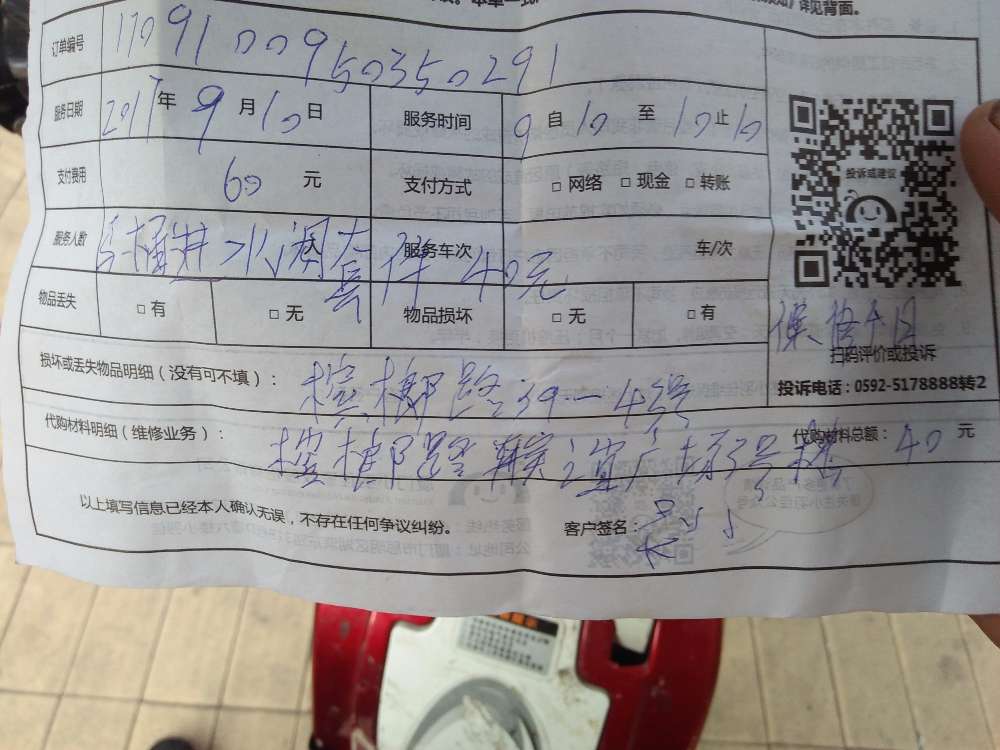 详见背面。
订单编号 17091009503502​91
服务日期 2017年9月10日 服务时间 9自10至10止10
投诉或建议
支付费用 60元 支付方式 □网络 □现金 □转账
服务人数 服务车次 车/次
套件 40元
物品丢失 □有 □无 物品损坏 □无 □有
扫码评价或投诉
损坏或丢失物品明细（没有可不填）： 槟榔路39-4号
投诉电话：0592-5178888转2
代购材料明细（维修业务）： 槟榔路 广场3号楼 代购材料总额：40元
以上填写信息已经本人确认无误，不存在任何争议纠纷。 客户签名：